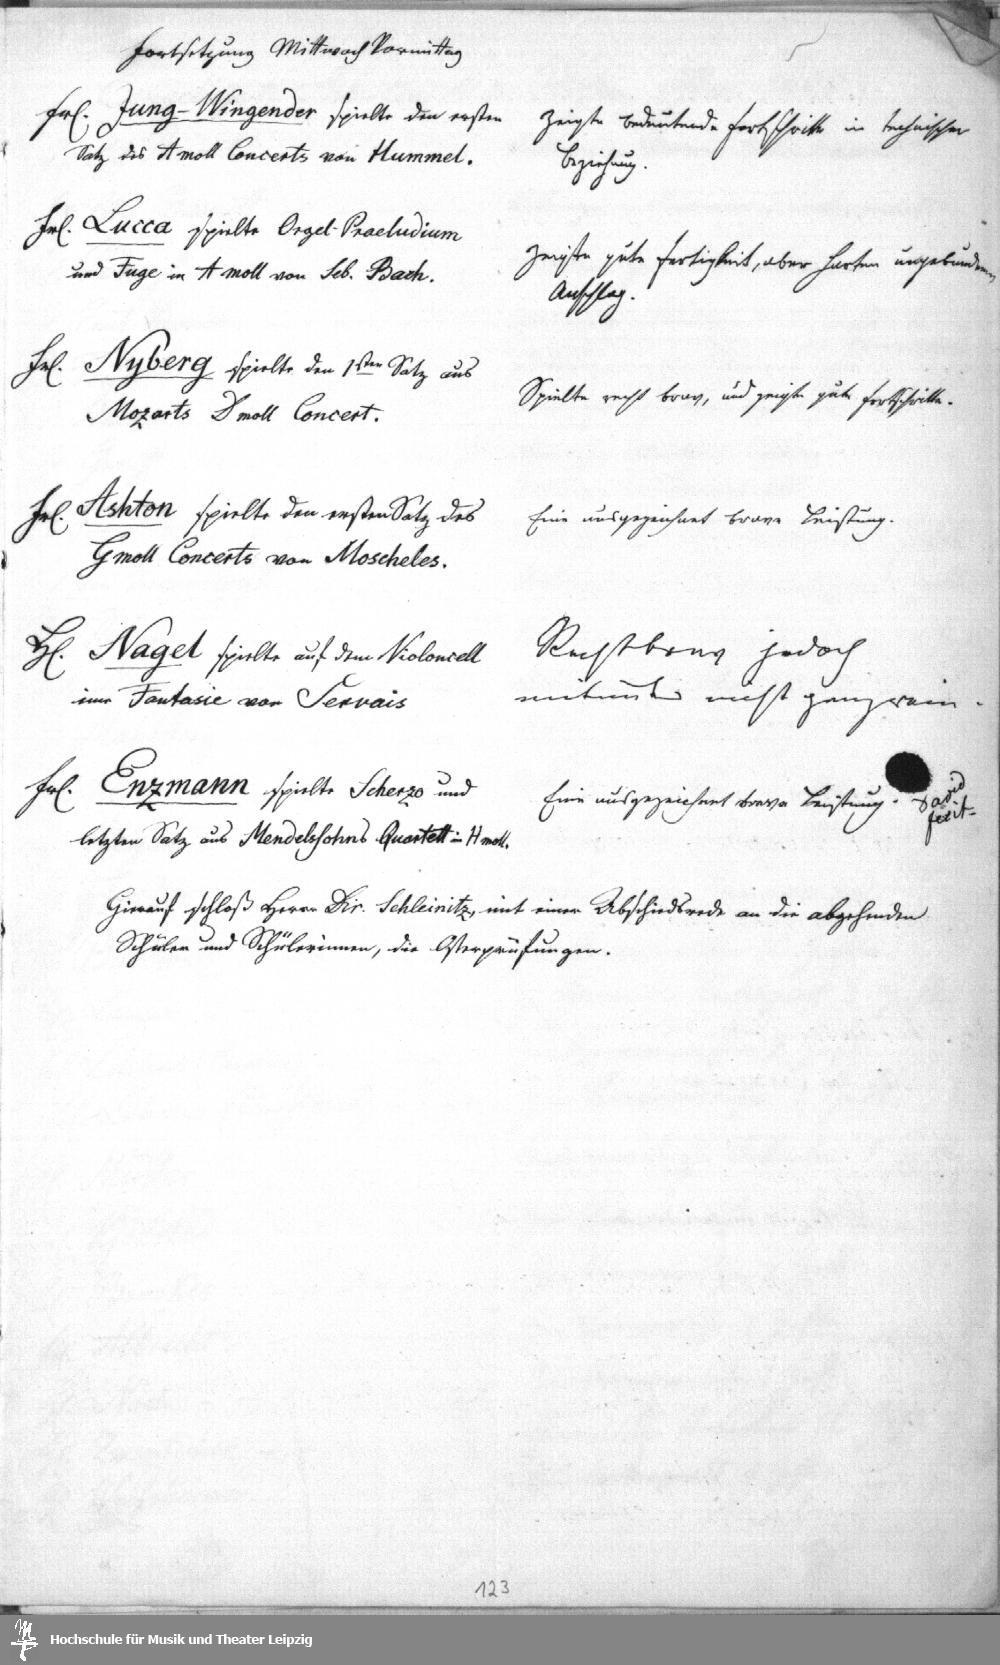 Fortsetzung Mittwoch Vormittag
Frl. Jung-Wingender spielte den ersten
Satz des A moll Concerts von Hummel.
zeigte bedeutende Fortschritte in technischer
Beziehung.
Frl. Lucca spielte Orgel-Praeludium
und Fuge in A moll von Seb. Bach.
zeigte gute Fertigkeit, aber harten ungebundenen
Anschlag.
Frl. Nyberg spielte den 1sten Satz aus
Mozarts D moll Concert.
Spielte recht brav, und zeigte gute Fortschritte.
Frl. Ashton spielte den ersten Satz des
G moll Concerts von Moscheles.
Eine ausgezeichnet brave Leistung.
H. Nagel spielte auf dem Violoncell
eine Fantasie von Servais
Recht brav jedoch
mitunter nicht ganz rein.
Frl. Enzmann spielte Scherzo und
letzten Satz aus Mendelssohns Quartett in H moll.
Eine ausgezeichnet brave Leistung.
David
fecit.
Hierauf schloß Herr Dir. Schleinitz, mit einer Abschiedsrede an die abgehenden
Schüler und Schülerinnen, die Osterprüfungen.
123
Hochschule für Musik und Theater Leipzig